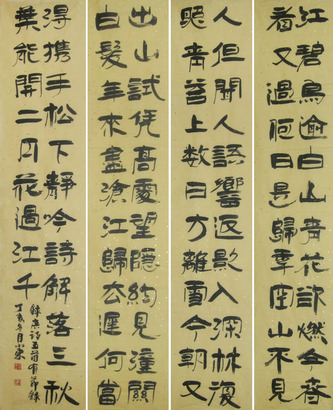 江碧鳥逾白山青花欲燃今春
看又過何日是歸年空山不見
人但聞人語響返影入深林復
照青苔上數日方離雪今朝又
出山試凭高處望隱約見潼關
白髮年來盡滄江歸去遲何當
得携手松下靜吟詩解落三秋
葉能開二月花過江千
錄唐詩五首有節錄
丁亥年